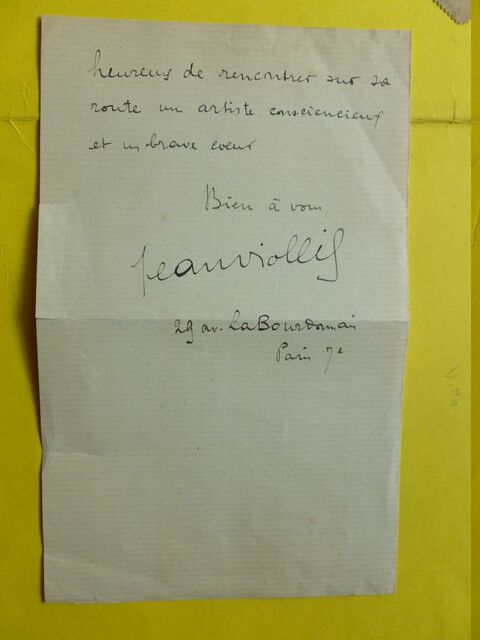 heureux de rencontrer sur sa
route un artiste consciencieux
et un brave coeur
Bien à vous
Jean Viollis
29 av. La Bourdonnais
Paris 7e